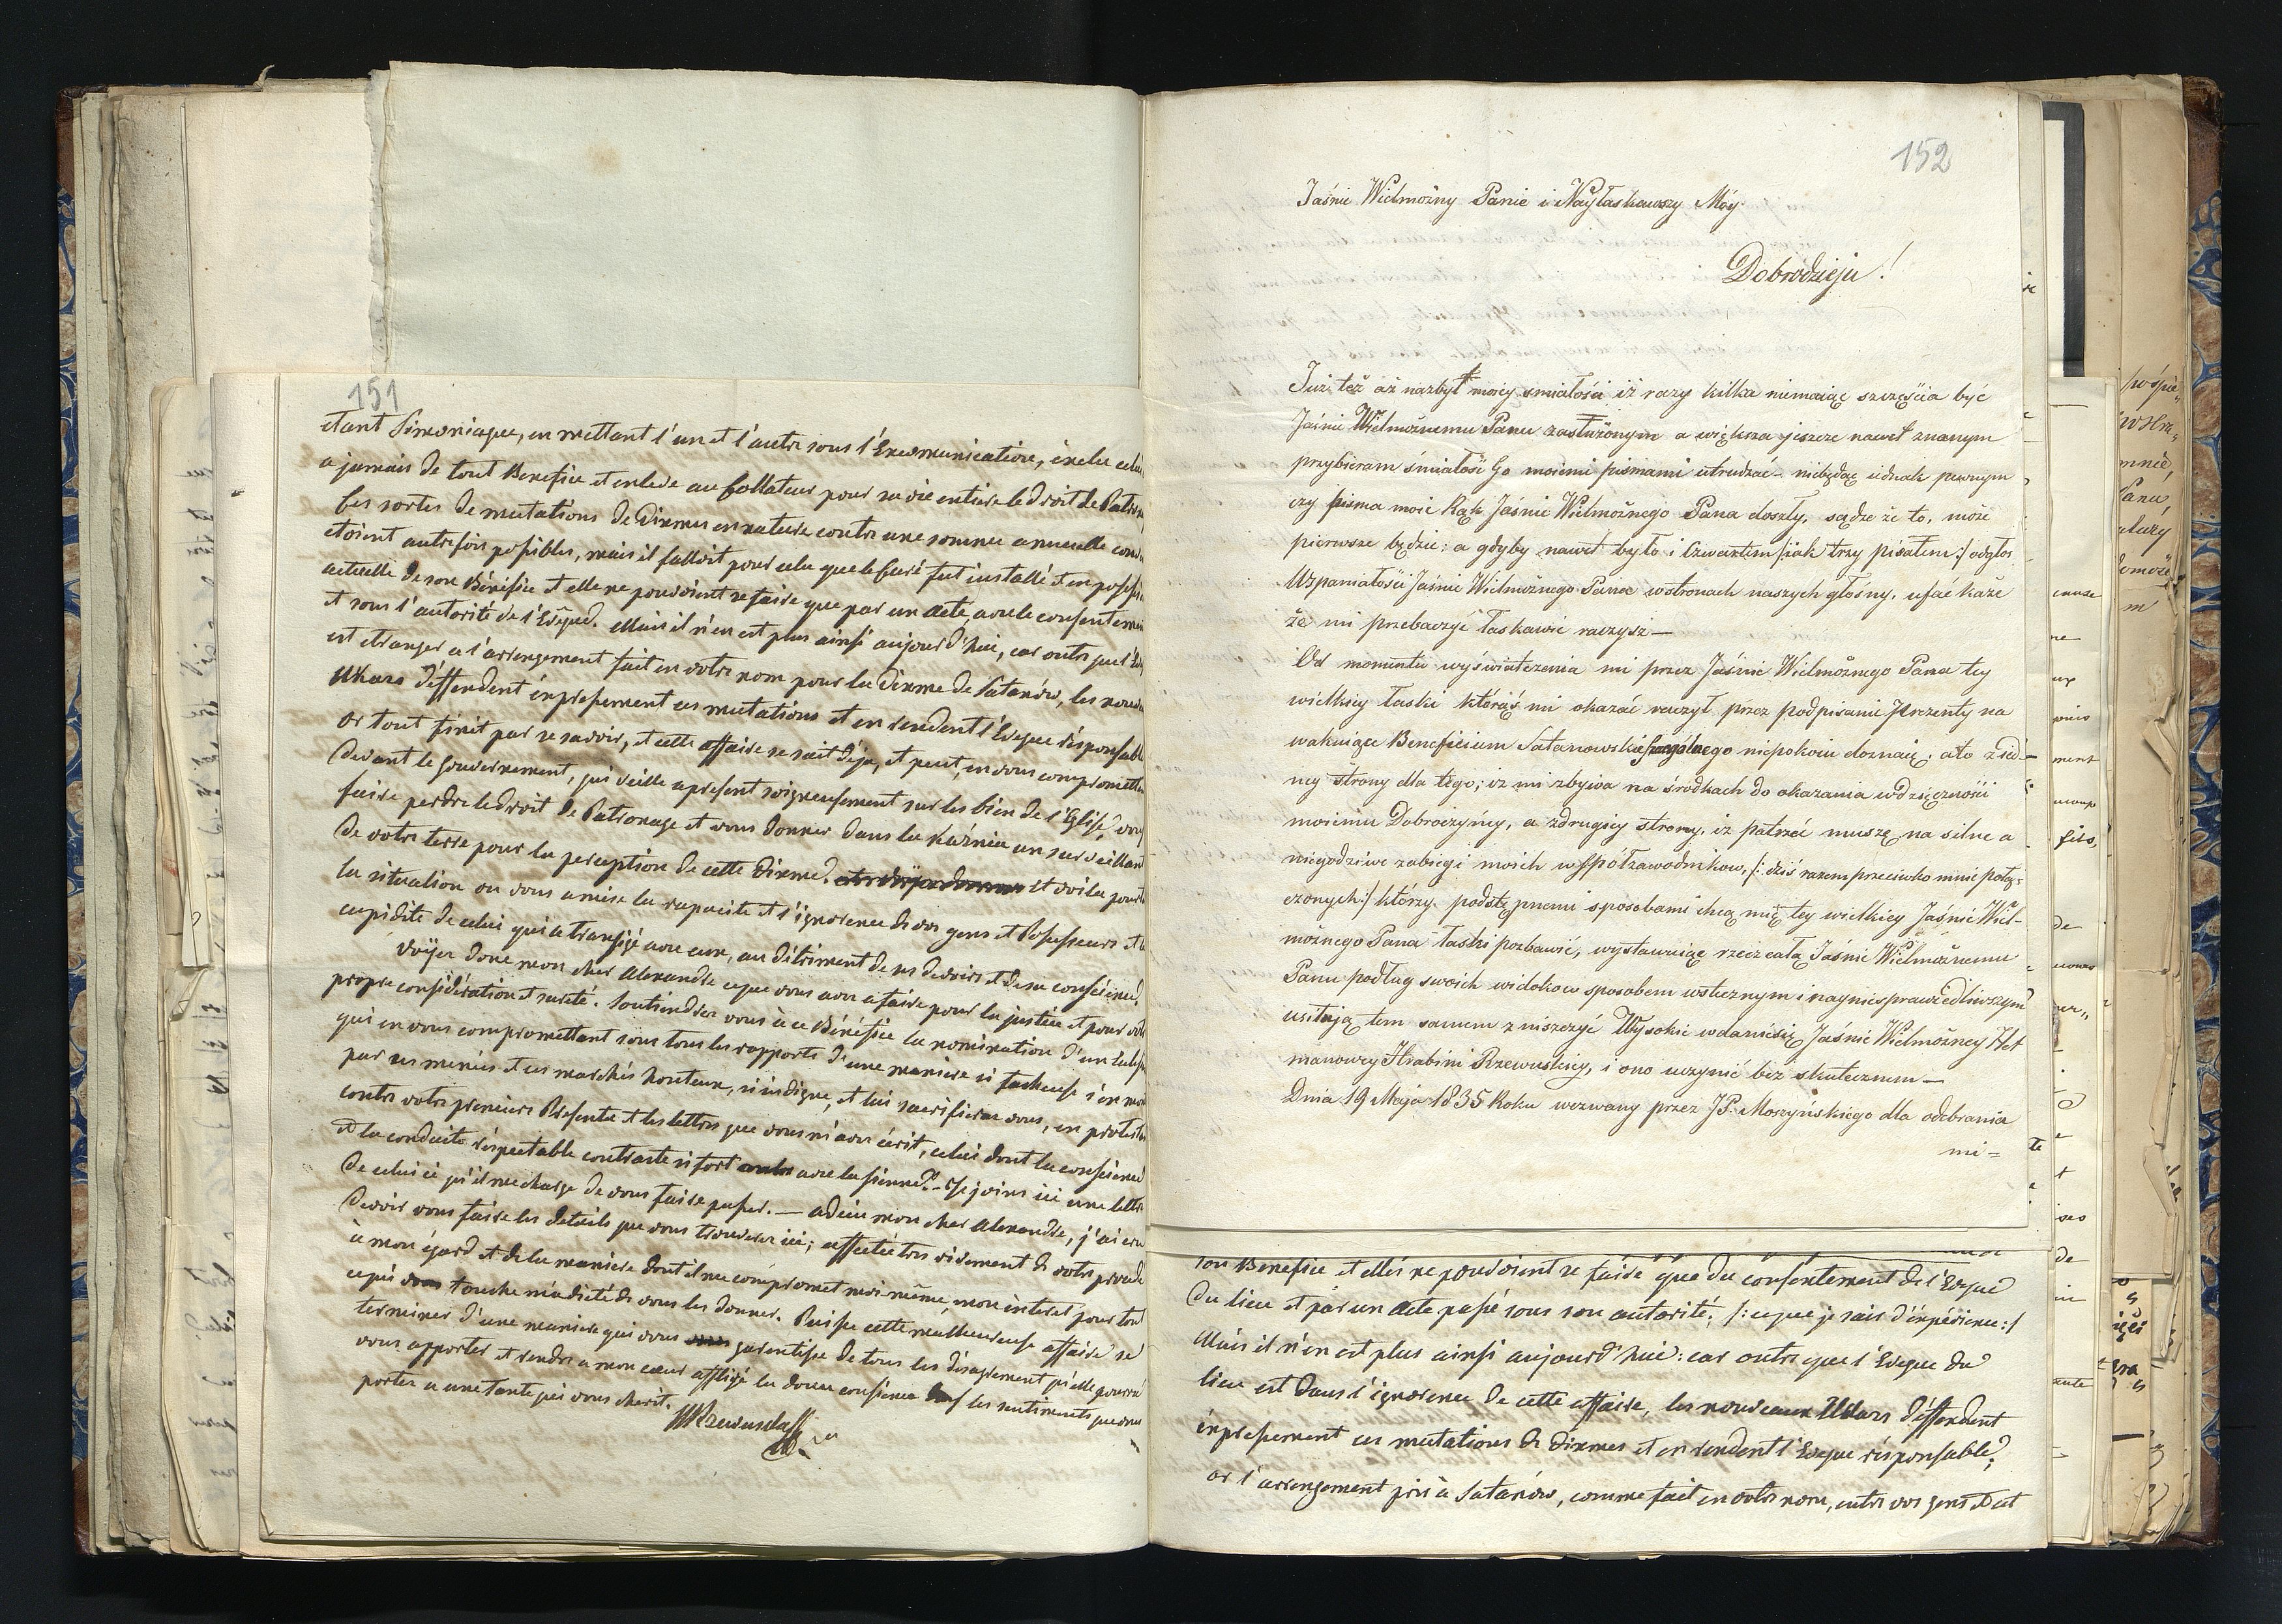 151
etant Simoniaque, en mettant l'un et l'autre sous l'Excommunication, exclu celui
a jamais de tout Benefice et enleve au Collateur pour sa vie entiere le droit de Patron
Ces sortes de mutations de Dixmes en nature contre une somme annuelle
etoient autrefois possibles, mais il falloit pour cela que le Curé fut installé et en possess
actuelle de son Bénéfice et elle ne pouvoient se faire que par un Acte, avec le consentemen
et sous l'autorité de l'Evêque. Mais il n'en est plus ainsi aujourd'hui, car outre que l'Ev
est etranger a l'arrengement fait en votre nom pour la Dixme de Satanów, les nouve
Ukazs déffendent éxpressement ces mutations et en rendent l'Evêque résponsable
or tout finit par se savoir, et cette affaire se sait déja, et peut, en vous compromettan
devant le Gouvernement, qui veille apresent soigneusement sur les bien de l'Eglise, vou
faire perdre le droit de Patronage et vous donner dans la Kaźnia un surveillant
de votre terre pour la perception de cette Dixme. Et voila pourta
la situation ou vous a mise la rapacité et l'ignorence de vos gens et Possesseurs et la
cupidité de celui qui a transigé avec eux, au détriment de ses devoirs et de sa conscience.
Voÿez donc mon cher Alexandre ce que vous avez a faire pour la justice et pour votr
propre considération et sureté. Soutiendrez vous à ce Bénéfice la nomination d'un
qui en vous compromettant sous tous les rapports d'une maniere si facheuse s'en
par ses menées et ses marchés honteux, si indigne, et lui sacrifierez vous, en protestan
contre votre premiere Présente et les lettres que vous m'avez écrit, celui dont la conscience
et la conduite réspectable contraste si fort avec la sienne? - Je joins ici une lettre
de celui ci qu'il me charge de vous faire passer. — adieu mon cher Alexandre, j'ai cru
devoir vous faire les détails que vous trouverez ici; affectée tres vivement de votre procedé
à mon égard et de la maniere dont il me compromet moi-même, mon interet pour tout
ce qui vous touche m'a dicté de vous les donner. Puisse cette malheureuse affaire se
terminer d'une maniere qui vous garentisse de tous les désagrement qu'elle pourra
vous apporter et rendre a mon cœur affligé la douce confience des sentiments que vous
portez a une Tante qui vous cherit.
152
Jaśnie Wielmożny Panie i Nayłaskawszy Móy
Dobrodzieju!
Już też aż nazbyt moiey smiałości iż razy kilka niemaiąc szczęścia być
Jaśnie Wielmożnemu Panu zasłużonym a większa jeszcze nawet znanym
przybieram śmiałość Go moiemi pismami utrudzać – niebędąc iednak pewnym
czy pisma moie Rąk Jaśnie Wielmożnego Pana doszły, sądze że to, może
pierwsze będzie; a gdyby nawet było i Czwartem /:jak trzy pisałem:/ odgłos
Wspaniałości Jaśnie Wielmożnego Pana wstronach naszych głośny, ufać każe
że mi przebaczyć łaskawie raczysz —
Od momentu wyświatczenia mi przez Jaśnie Wielmożnego Pana tey
wielkiey łaski któráś mi okazać raczył przez podpisanie Prezenty na
wakuiące Beneficium Satanowskie szczególnego niepokoiu doznaię; ato z ied-
ney strony dla tego; iż mi zbywa na środkach do okazania wdzięczności
moiemu Dobroczyńcy, a zdrugiey strony, iż patrzeć muszę na silne a
niegodziwe zabiegi moich wspołzawodnikow, /: dziś razem przeciwko mnie połą-
czonych:/ którzy podstępnemi sposobami chcą mię tey wielkiey Jaśnie Wiel-
możnego Pana łaski pozbawić, wystawuiąc rzecz całą Jaśnie Wielmożnemu
Panu podług swoich widokow sposobem wstecznym i nayniesprawiedliwszym
usiłują tem samem zniszczyć Wysokie wdanie się Jaśnie Wielmożney Het
manowey Hrabini Rzewuskiey, i ono uczynić bez skutecznem —
Dnia 19 Maja 1835 Roku wezwany przez JP. Moszyńskiego dla odebrania
mi =
son Benefice et elles ne pouvoient se faire que du consentement de l'Evêque
du lieu et par un Acte passé sous son autorité; /: ce que je sais d'éxpérience :/
Mais il n'en est plus ainsi aujourd'hui: car outre que l'Evêque du
lieu est dans l'ignorence de cette affaire, les nouveaux Ukazs déffendent
éxpressement ces mutations de Dixmes et en rendent l'Evêque résponsable;
or l'arrengement pris à Satanów, comme fait en votre nom, entre vos gens et